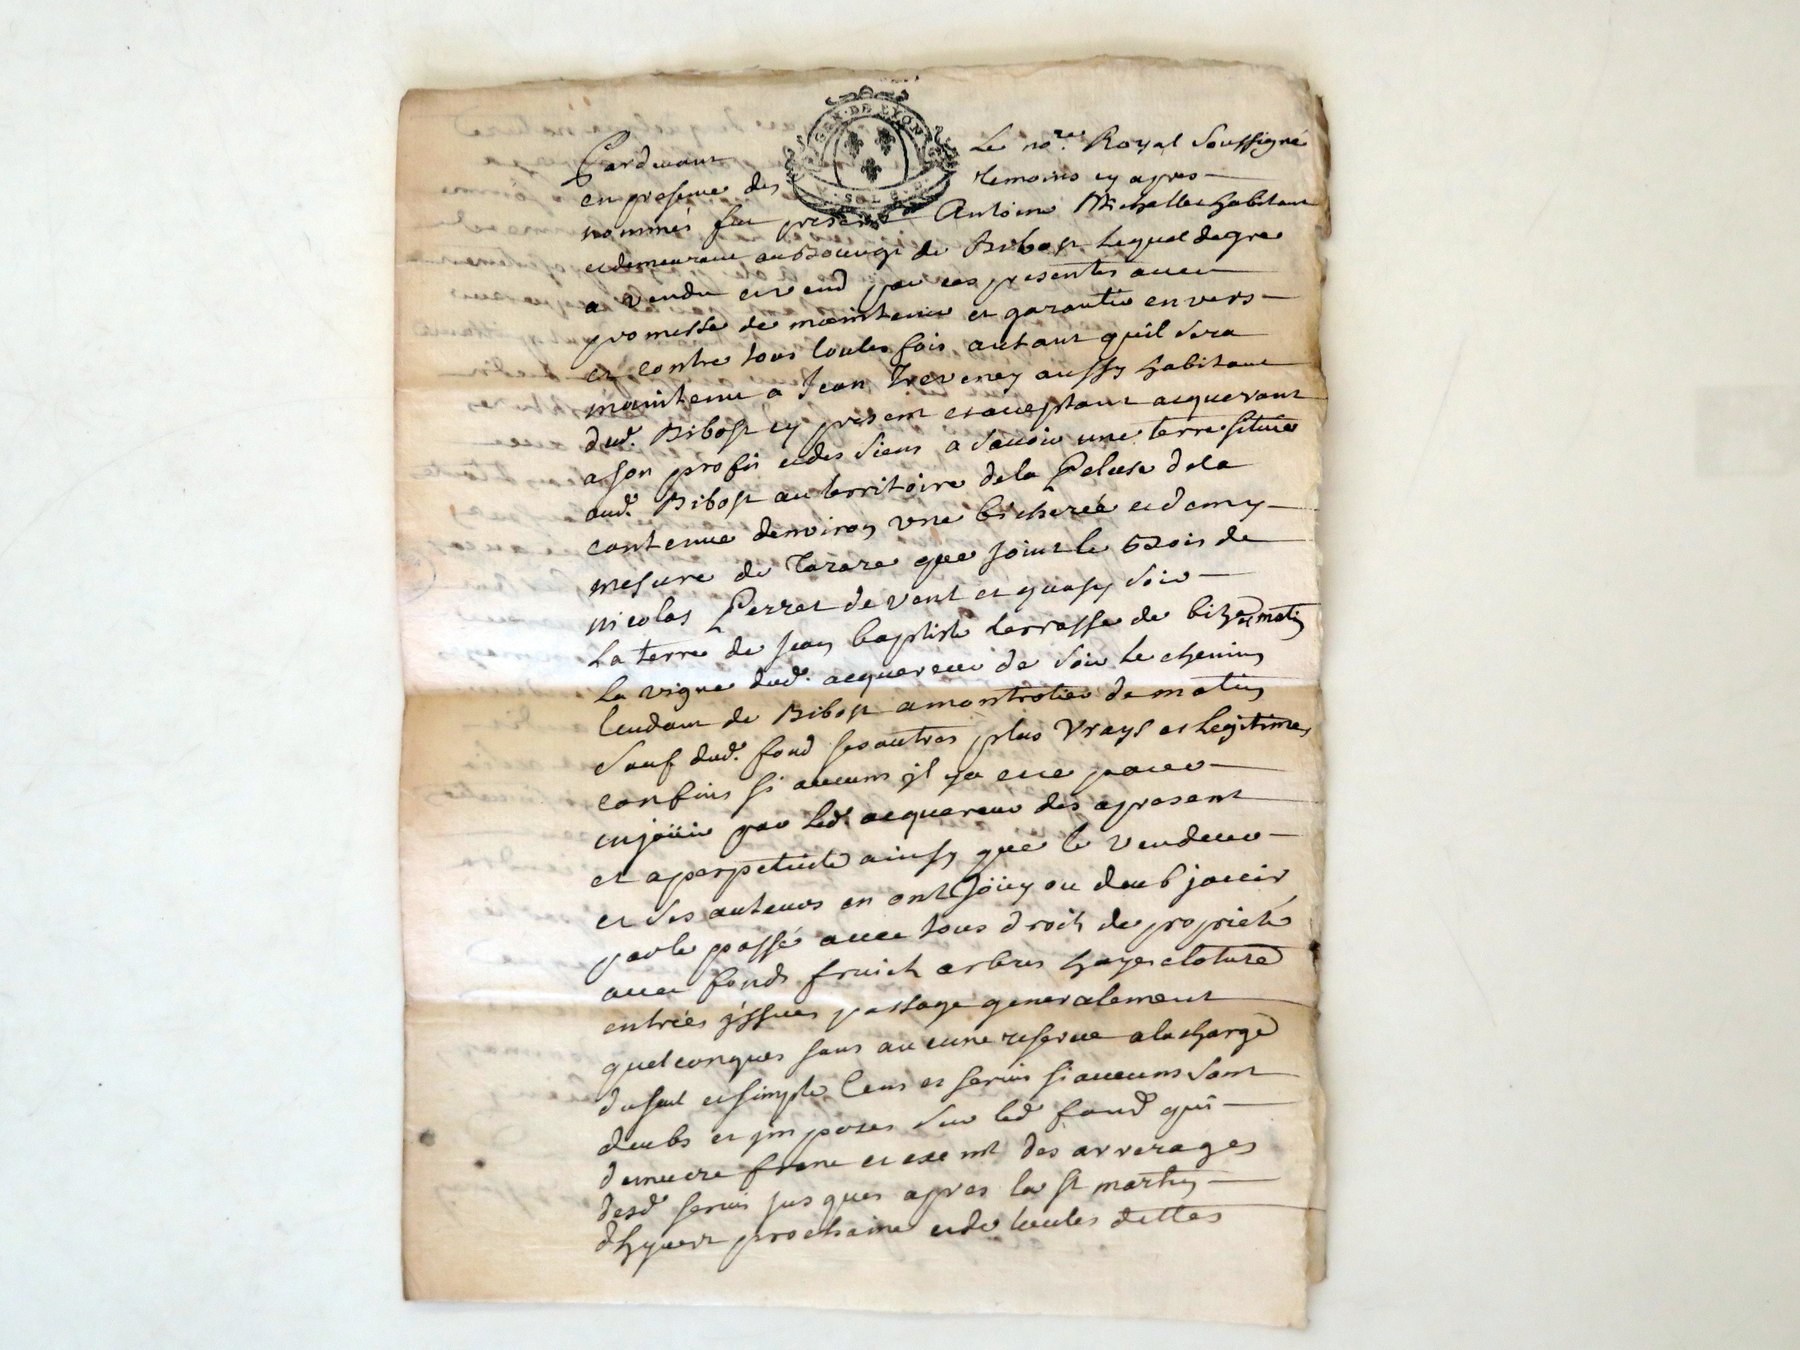 GEN. DE LYON
SOLS
Pardevant Le no.re Royal Soussigné
en presence des temoins cy apres
nommés fut present Antoine habitant
et demeurant au Bourg de Bibost lequel de gre
a vendu et vend par ces presentes avec
promesse de maintenir et garantir envers
et contre tous toutes fois autant quil sera
maintenu a Jean Treveney aussy habitant
dud. Bibost cy present et acceptant acquerant
a son profit et des siens a Savoir une terre située
aud. Bibost au territoire de la Peluse de la
contenue denviron une bicherée et demy
mesure de Tarare que joint le Bois de
nicolas Perret de vent et quasy Soir
La terre de jean baptiste terrasse de bize matin
la vigne dud. acquereur de Soir le chemin
tendant de Bibost a montrotier de matin
Sauf dud. fond ses autres plus Vrays et legitimes
confins si aucuns jl y a eue pour
en joüir par led. acquereur des apresent
et aperpetuité ainsy que le vendeur
et ses auteurs en ont joüy ou deub joüir
par le passé avec tous droits de proprieté
avec fonds fruicts arbres hayes cloture
entrées jssues passage generalement
quelconques sans aucune reserve a la charge
du seul et simple Cens et servis si aucuns Sont
deubs et jmposes Sur led. fond qui
demeure franc et exempt des arrerages
desd. servis jusques apres la St martin
dhyvert prochaine et de toutes dettes